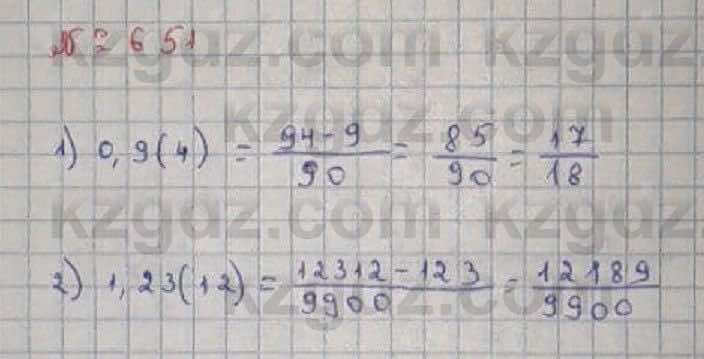 № 651
kzgdz.com kzgdz.com
1) 0,9(4) = 94-9/90 = 85/90 = 17/18
kzgdz.com kzgdz.com
2) 1,23(12) = 12312-123/9900 = 12189/9900